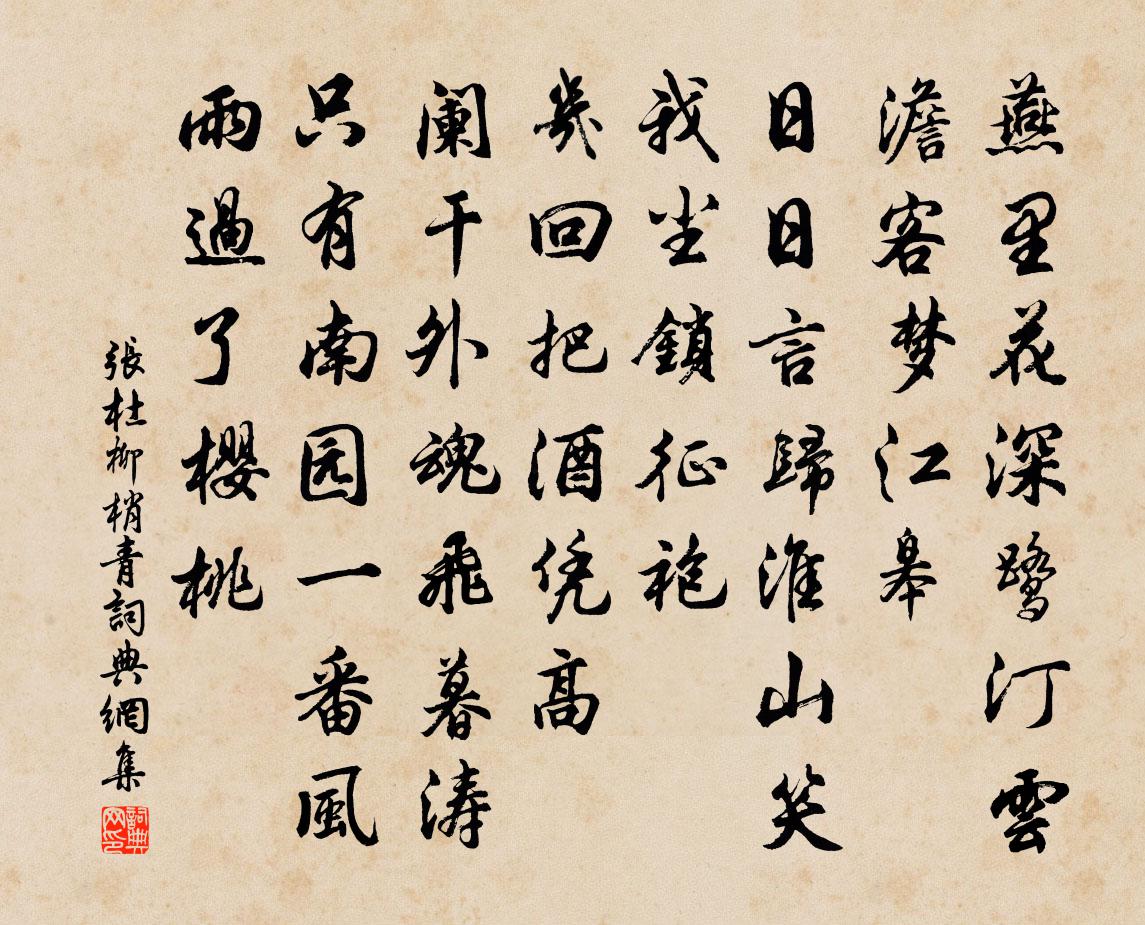 燕里花深鹭汀雲
澹客梦江皋
日日言歸淮山笑
我尘鎖征袍
幾回把酒凭高
阑干外魂飛暮涛
只有南园一番風
雨過了櫻桃
張杜柳梢青詞典網集
詞典网印